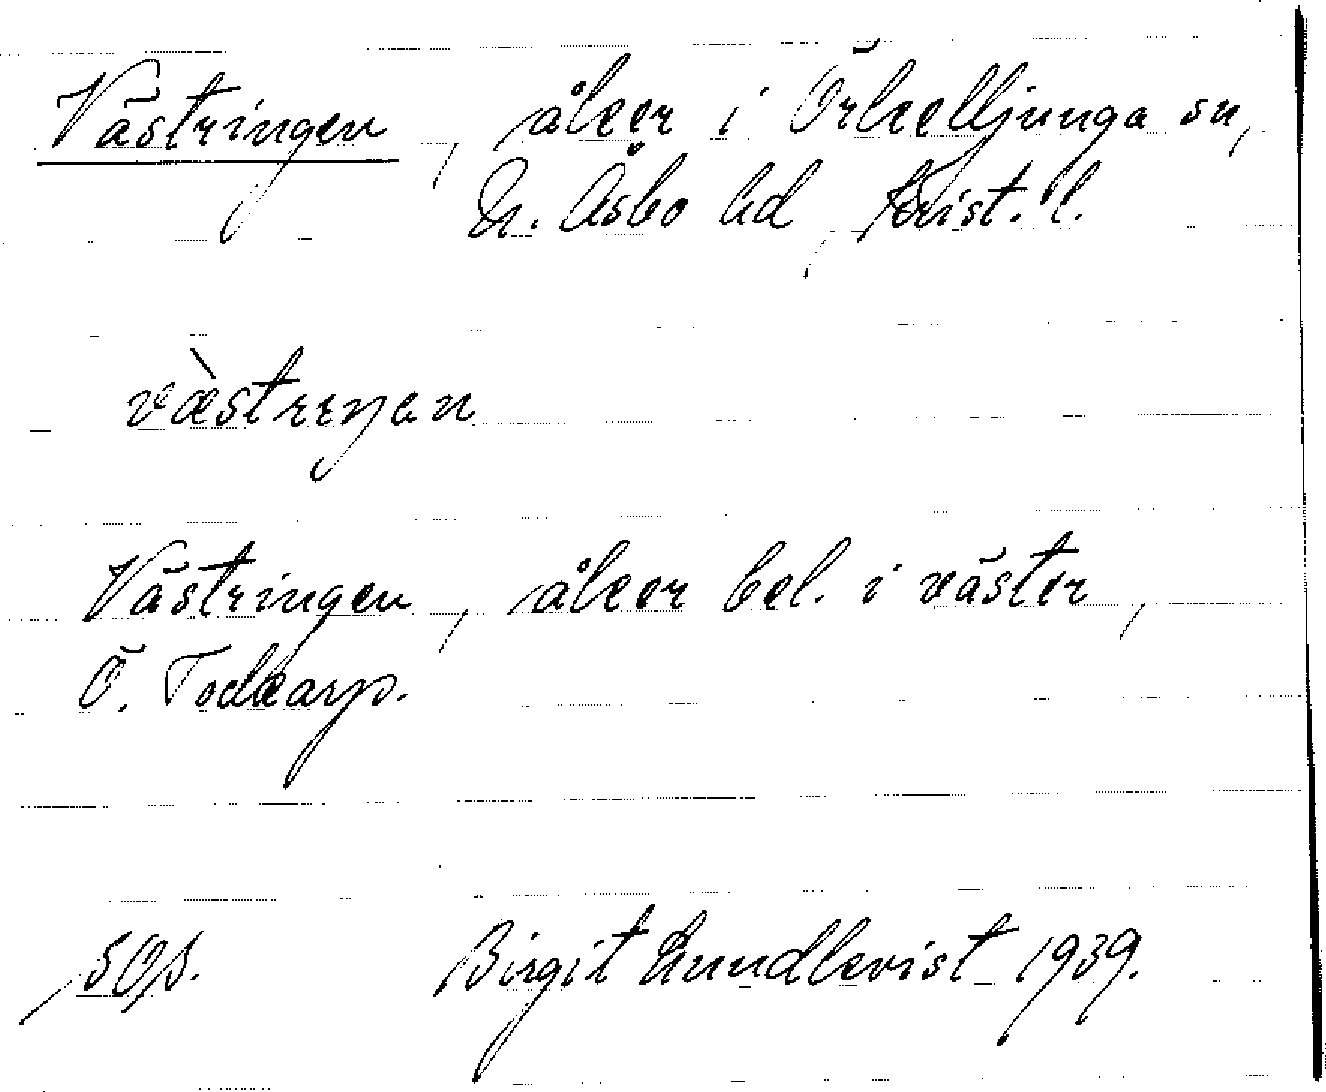 Västringen, åker i Örkelljunga sn,
N. Åsbo hd, Krist. l.
væ̀strıŋan
Västringen, åker bel. i väster,
Ö. Tockarp.
SOS. Birgit Lundkvist 1939.